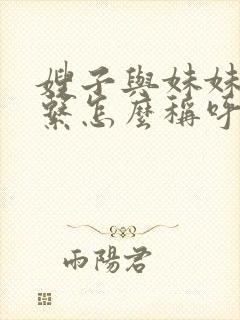 嫂子與妹妹
繫怎麼稱呼
雨陽君